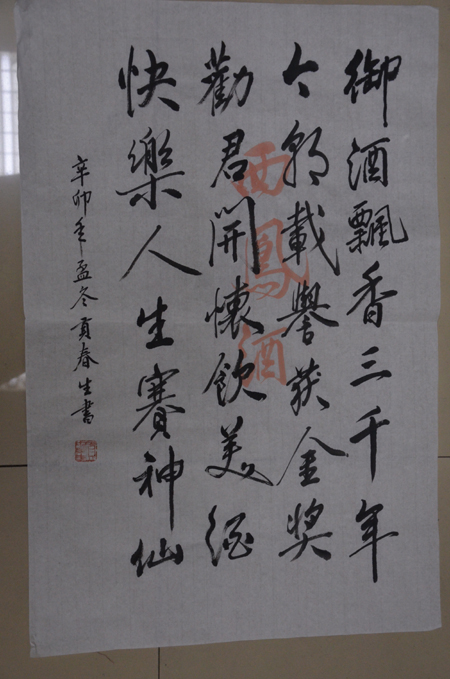 御酒飄香三千年
今朝載譽获金奖
勸君開懷飲美酒
快樂人生賽神仙
辛卯年孟冬貢春生書
西鳳酒